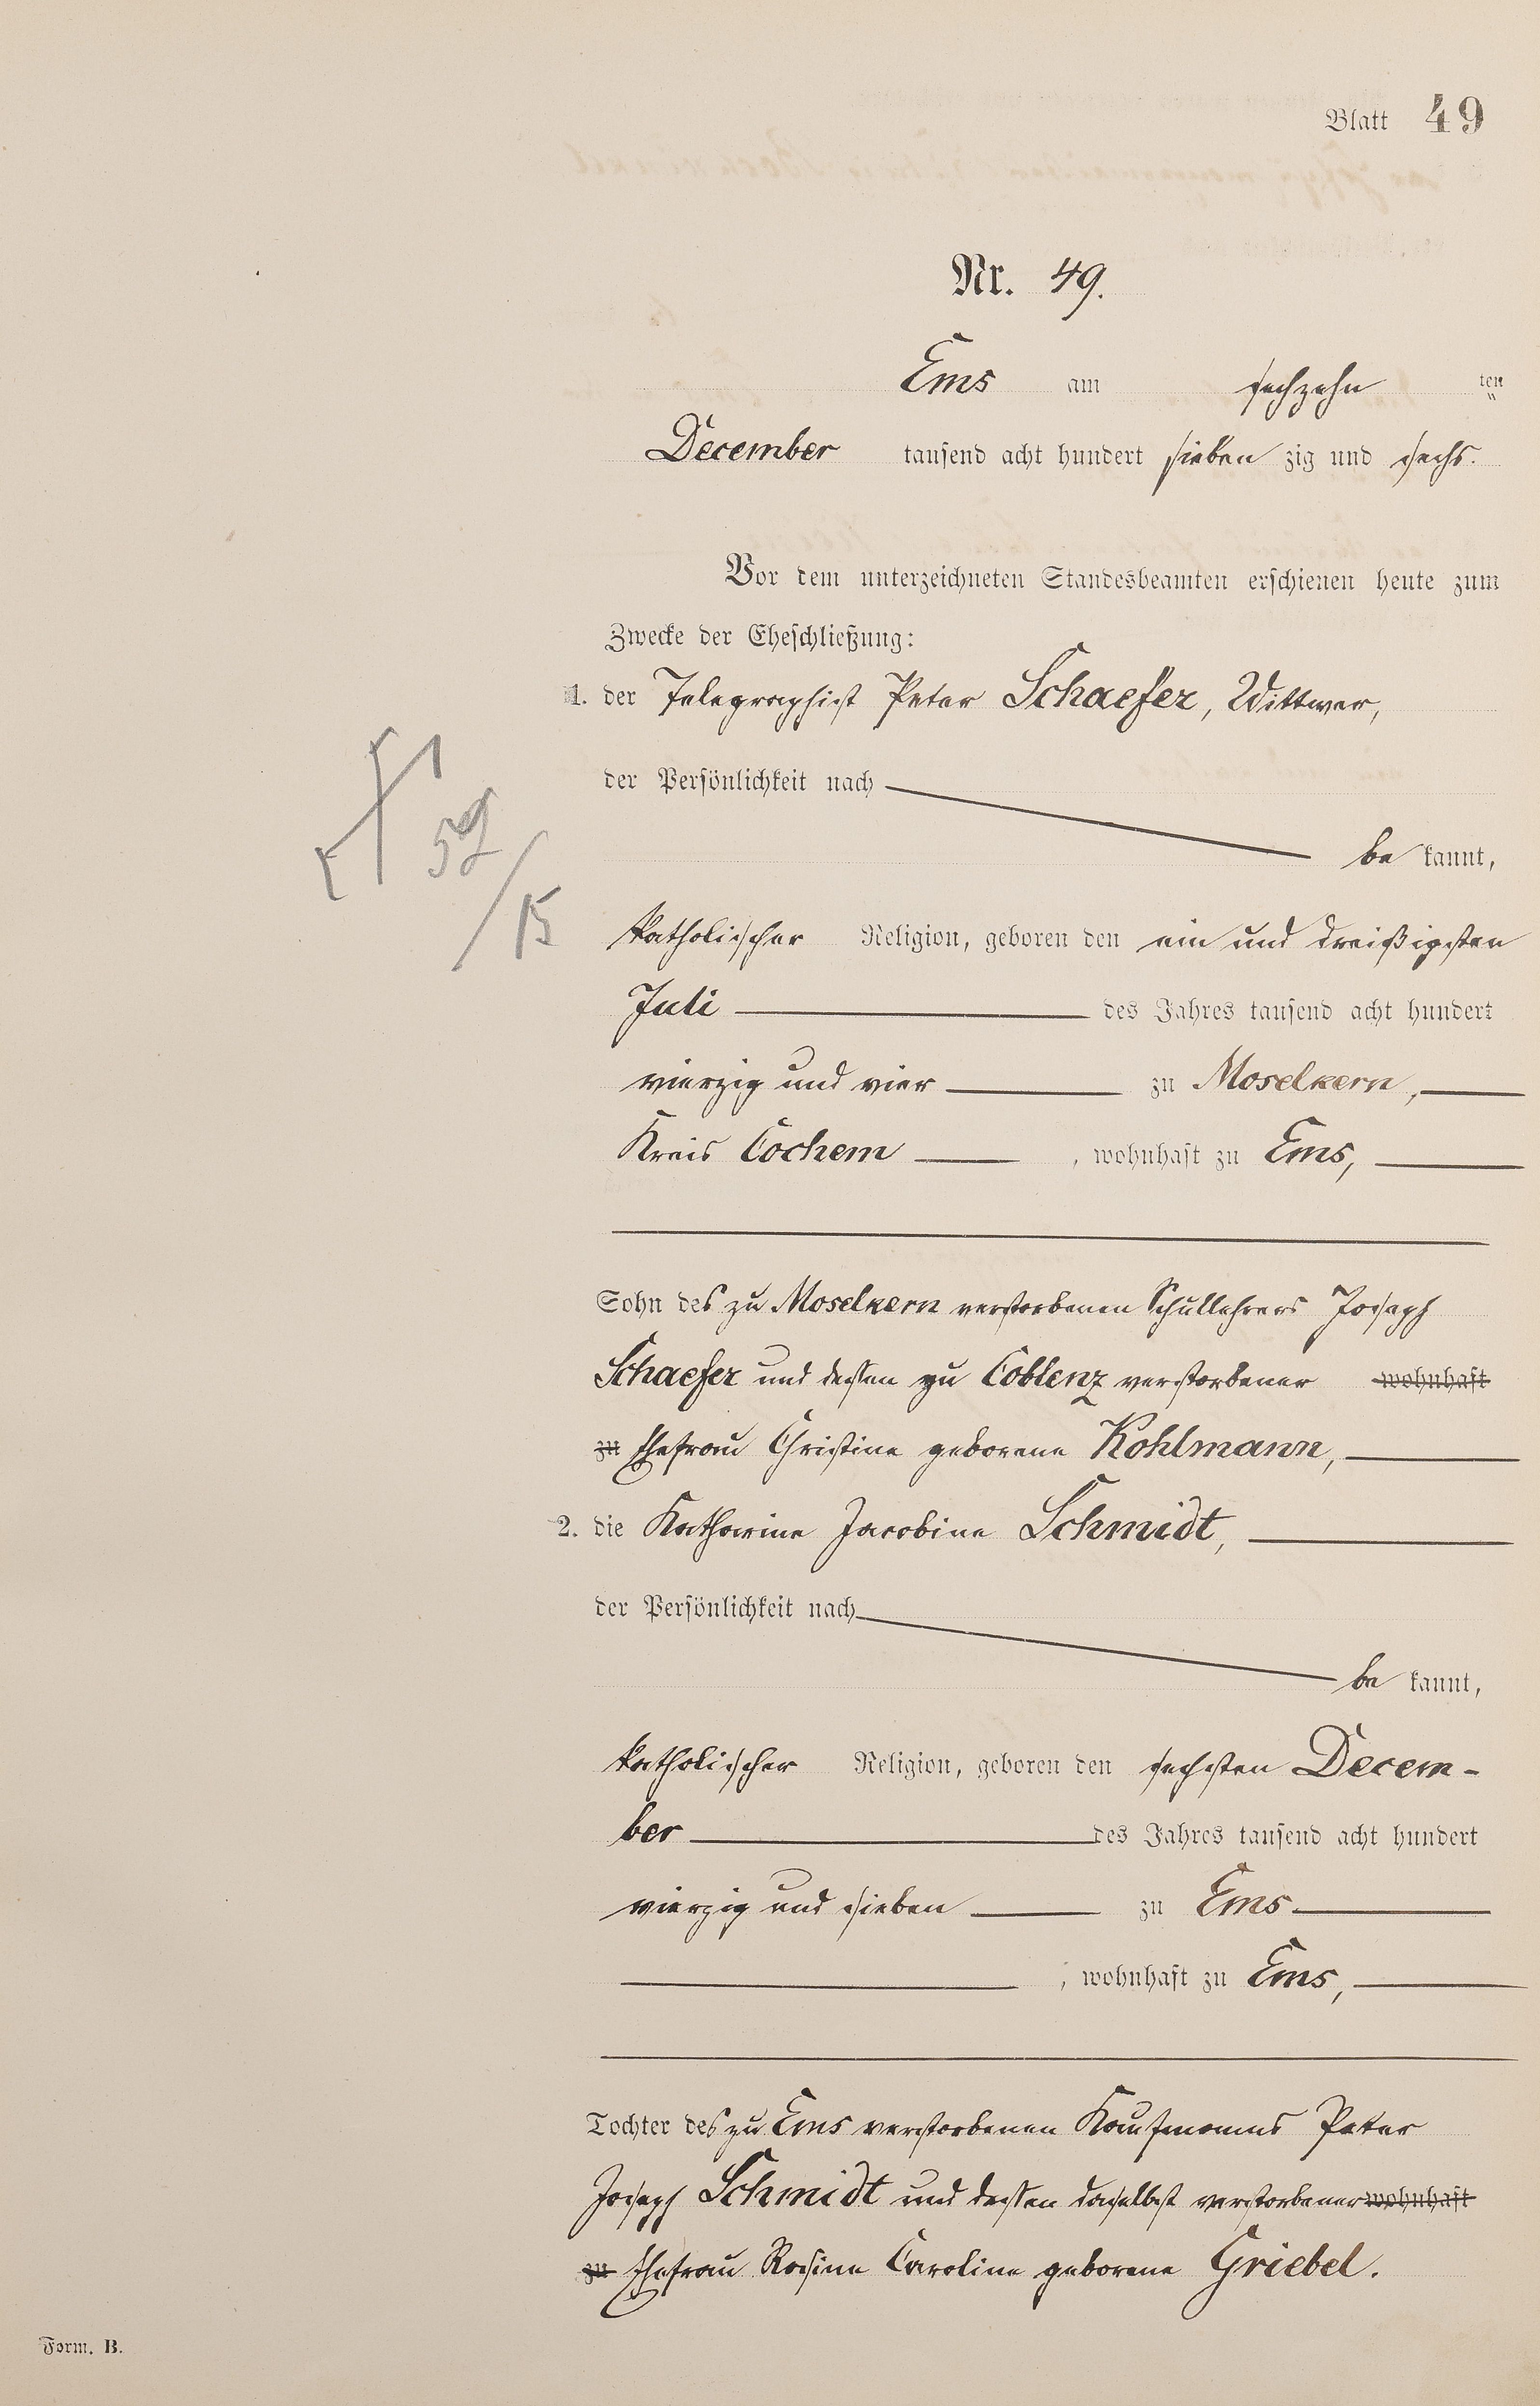 Blatt 49
Nr. 49.
Ems am sechzehn ten
December tausend acht hundert sieben zig und sechs.
Vor dem unterzeichneten Standesbeamten erschienen heute zum
Zwecke der Eheschließung:
1. der Telegraphist Peter Schaefer, Wittwer,
der Persönlichkeit nach
be kannt,
katholischer Religion, geboren den ein und dreißigsten
Juli des Jahres tausend acht hundert
vierzig und vier zu Moselkern,
Kreis Cochem, wohnhaft zu Ems,
Sohn des zu Moselkern verstorbenen Schullehrers Joseph
Schaefer und dessen zu Coblenz verstorbener wohnhaft
zu Ehefrau Christine geborene Kohlmann,
2. die Katharine Jacobine Schmidt,
der Persönlichkeit nach
be kannt,
katholischer Religion, geboren den sechsten Decem-
ber des Jahres tausend acht hundert
vierzig und sieben zu Ems
, wohnhaft zu Ems,
Tochter des zu Ems verstorbenen Kaufmanns Peter
Joseph Schmidt und dessen daselbst verstorbener wohnhaft
zu Ehefrau Rosine Caroline geborene Griebel.
Form. B.